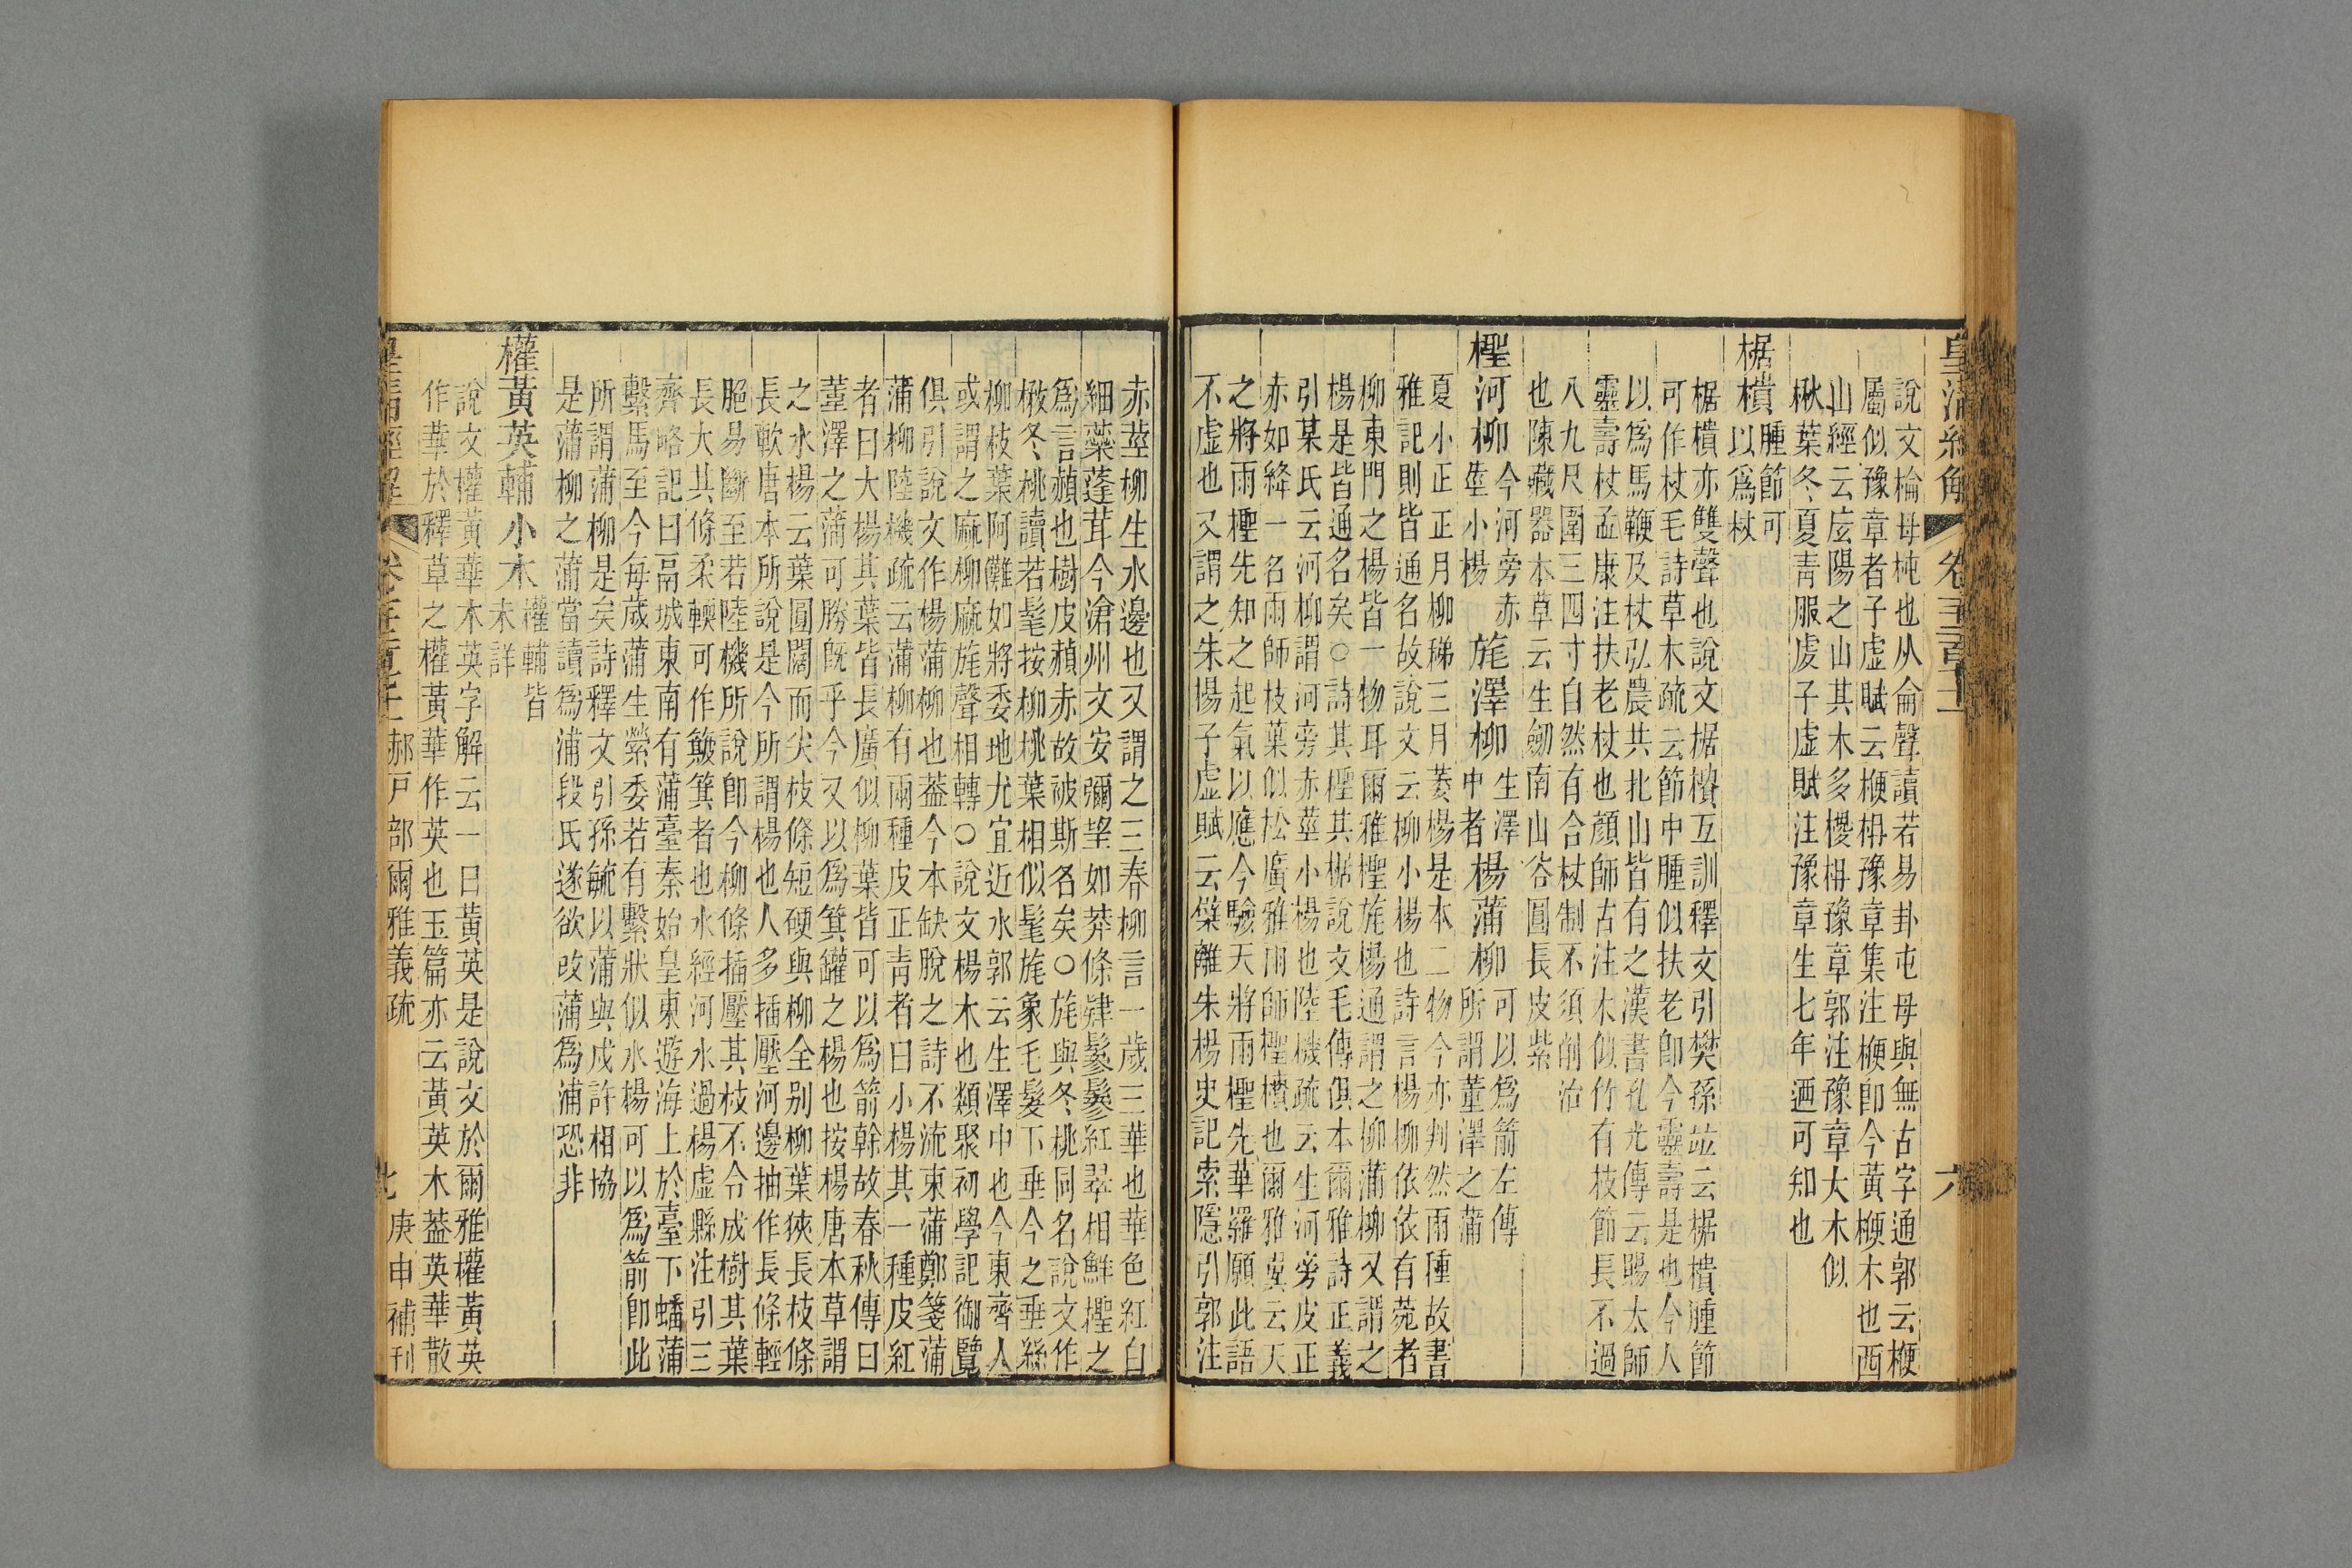 說文棆母杶也从侖聲讀若易卦屯母與無古字通郭云楩
屬似豫章者子虛賦云楩枏豫章集注楩卽今黃楩木也西
山經云厎陽之山其木多㮨枏豫章郭注豫章大木似
楸葉冬夏靑服虔子虛賦注豫章生七年迺可知也
椐樻腫節可以爲杖
椐樻亦雙聲也說文椐樻互訓釋文引樊孫竝云椐樻腫節
可作杖毛詩草木疏云節中腫似扶老卽今靈壽是也今人
以爲馬鞭及杖弘農共北山皆有之漢書孔光傳云賜太師
靈壽杖孟康注扶老杖也顏師古注木似竹有枝節長不過
八九尺圍三四寸自然有合杖制不須削治
也陳藏器本草云生劒南山谷圓長皮紫
檉河柳今河旁赤莖小楊旄澤柳生澤中者楊蒲柳可以爲箭左傳所謂董澤之蒲
夏小正正月柳稊三月萎楊是本二物今亦判然兩種故書
雅記則皆通名故說文云柳小楊也詩言楊柳依依有菀者
柳東門之楊皆一物耳爾雅檉旄楊通謂之柳蒲柳又謂之
楊是皆通名矣○詩其檉其椐說文毛傳俱本爾雅詩正義
引某氏云河柳謂河旁赤莖小楊也陸機疏云生河旁皮正
赤如絳一名雨師枝葉似松廣雅雨師檉樻也爾雅翼云天
之將雨檉先知之起氣以應今驗天將雨檉先華羅願此語
不虛也又謂之朱揚子虛賦云檗離朱楊史記索隱引郭注
赤莖柳生水邊也又謂之三春柳言一歲三華也華色紅白
細蘂蓬茸今滄州文安彌望如莽條肄鬖鬖紅翠相鮮檉之
爲言赬也樹皮赬赤故被斯名矣○旄與冬桃同名說文作
楸冬桃讀若髦按柳桃葉相似髦旄象毛髮下垂今之垂絲
柳枝葉阿儺如將委地尤宜近水郭云生澤中也今東齊人
或謂之麻柳麻旄聲相轉○說文楊木也類聚初學記御覽
俱引說文作楊蒲柳也葢今本缺脫之詩不流束蒲鄭箋蒲
蒲柳陸機疏云蒲柳有兩種皮正靑者曰小楊其一種皮紅
者曰大楊其葉皆長廣似柳葉皆可以爲箭幹故春秋傳曰
董澤之蒲可勝旣乎今又以爲箕罐之楊也按楊唐本草謂
之水楊云葉圓闊而尖枝條短硬與柳全别柳葉狹長枝條
長軟唐本所說是今所謂楊也人多插壓河邊抽作長條輕
脆易斷至若陸機所說卽今柳條插壓其枝不令成樹其葉
長大其條柔輭可作簸箕者也水經河水過楊虛縣注引三
齊略記曰鬲城東南有蒲臺秦始皇東遊海上於臺下蟠蒲
繫馬至今每歲蒲生縈委若有繫狀似水楊可以爲箭卽此
所謂蒲柳是矣詩釋文引孫毓以蒲與戍許相協
是蒲柳之蒲當讀爲浦段氏遂欲改蒲爲浦恐非
權黃英輔小木權輔皆未詳
說文權黃華木英字解云一曰黃英是說文於爾雅權黃英
作華於釋草之權黃華作英也玉篇亦云黃英木葢英華散
郝戸部爾雅義疏 庚申補刊